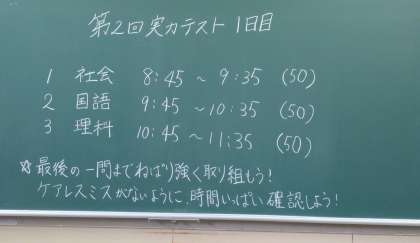 第2回実力テスト 1日目
1 社会 8:45 ～ 9:35 (50)
2 国語 9:45 ～ 10:35 (50)
3 理科 10:45 ～ 11:35 (50)
☆最後の一問までねばり強く取り組もう!
ケアレスミスがないように、時間いっぱい確認しよう!